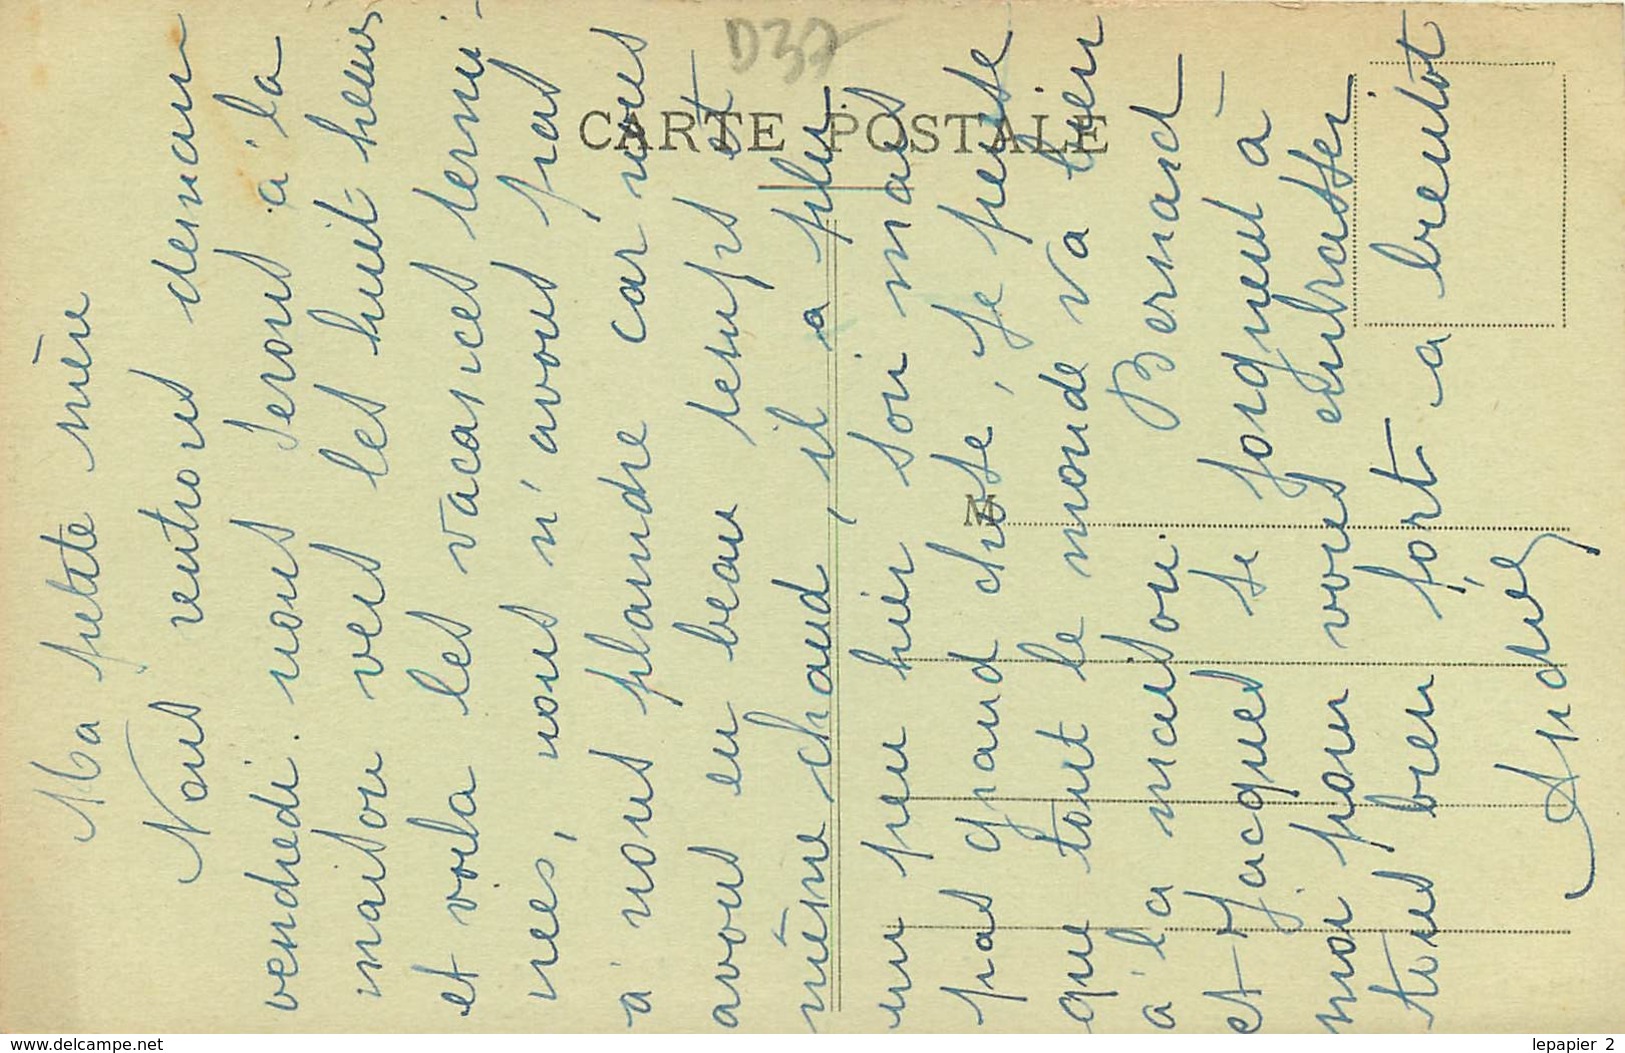 Ma petite mère
Nous rentrons demain
vendredi. nous serons à la
maison vers les huit heures
et voila les vacances termi-
nées, nous n'avons pas
à nous plaindre car nous
avons eu beau temps et
même chaud, il a plu
un peu hier soir mais
pas grand chose, je pense
que tout le monde va bien
à la maison. Bernard
et Jacques se joignent à
moi pour vous embrasser
tous bien fort a bientot
Andrée
D37
CARTE POSTALE
M
www.delcampe.net
lepapier 2